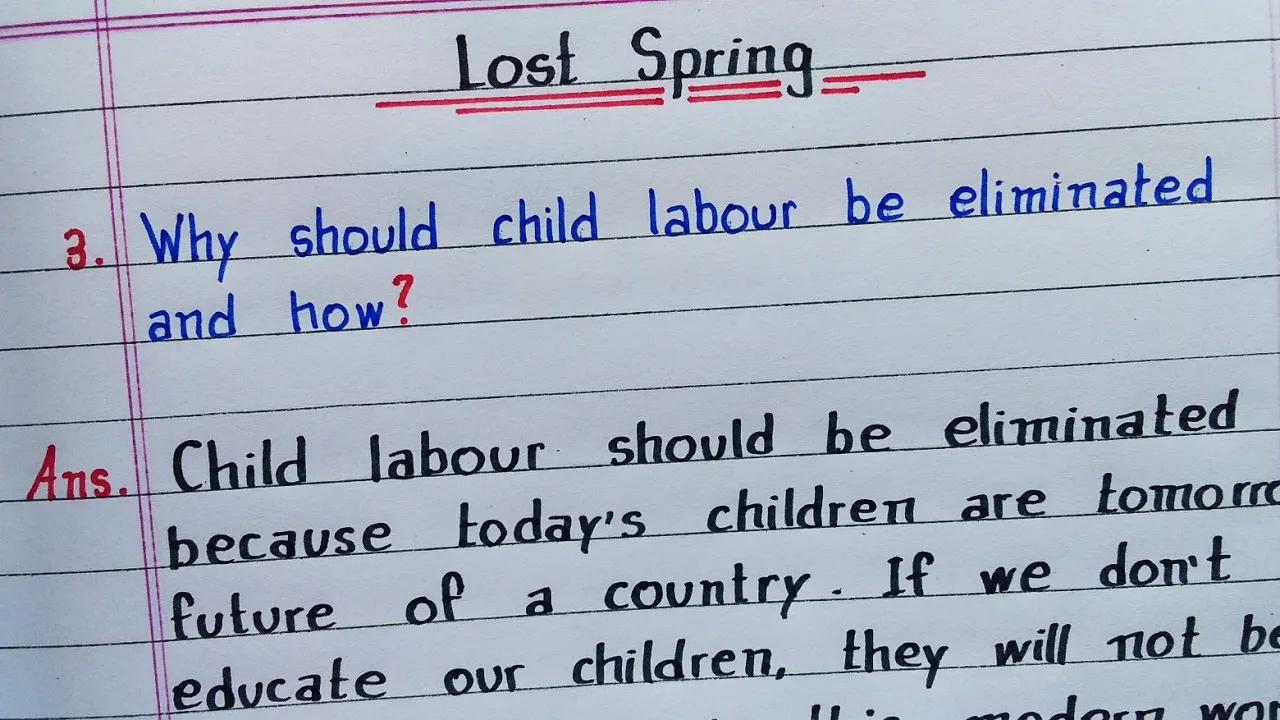 Lost Spring
3. Why should child labour be eliminated
and how?
Ans. Child labour should be eliminated
because today's children are tomorro
future of a country. If we don't
educate our children, they will not be
modern